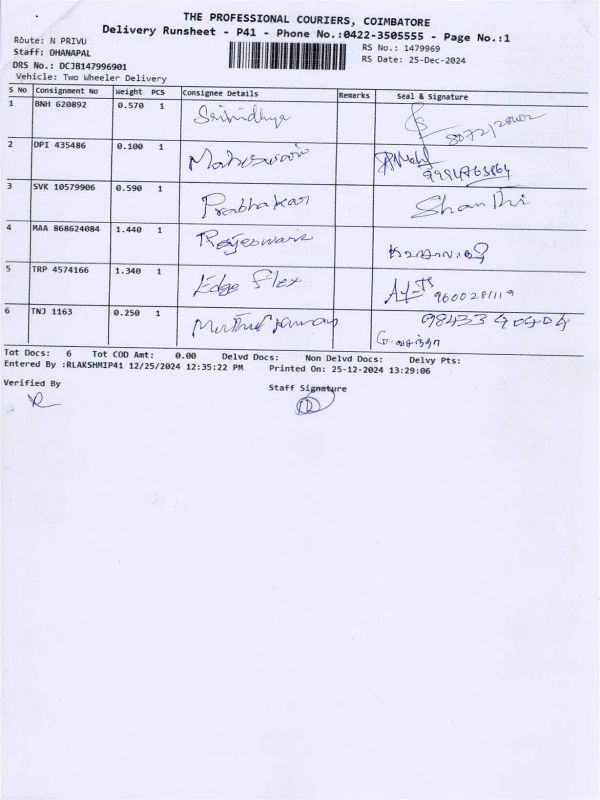 THE PROFESSIONAL COURIERS, COIMBATORE
Delivery Runsheet - P41 - Phone No.:0422-3505555 - Page No.:1
Route: N PRIVU
RS No.: 1479969
Staff: DHANAPAL
RS Date: 25-Dec-2024
DRS No.: DCJB147996901
Vehicle: Two Wheeler Delivery
S No Consignment No Weight PCS Consignee Details Remarks Seal & Signature
1 BNH 620892 0.570 1 Srinidhya
2 DPI 435486 0.100 1 Maheswari
3 SVK 10579906 0.590 1 Prabhakar Shanthi
4 MAA 868624084 1.440 1 Rajeswari
5 TRP 4574166 1.340 1 Edge Flex 9600281119
6 TNJ 1163 0.250 1 98433 40404
Tot Docs: 6 Tot COD Amt: 0.00 Delvd Docs: Non Delvd Docs: Delvy Pts:
Entered By :RLAKSHMIP41 12/25/2024 12:35:22 PM Printed On: 25-12-2024 13:29:06
Verified By
Staff Signature